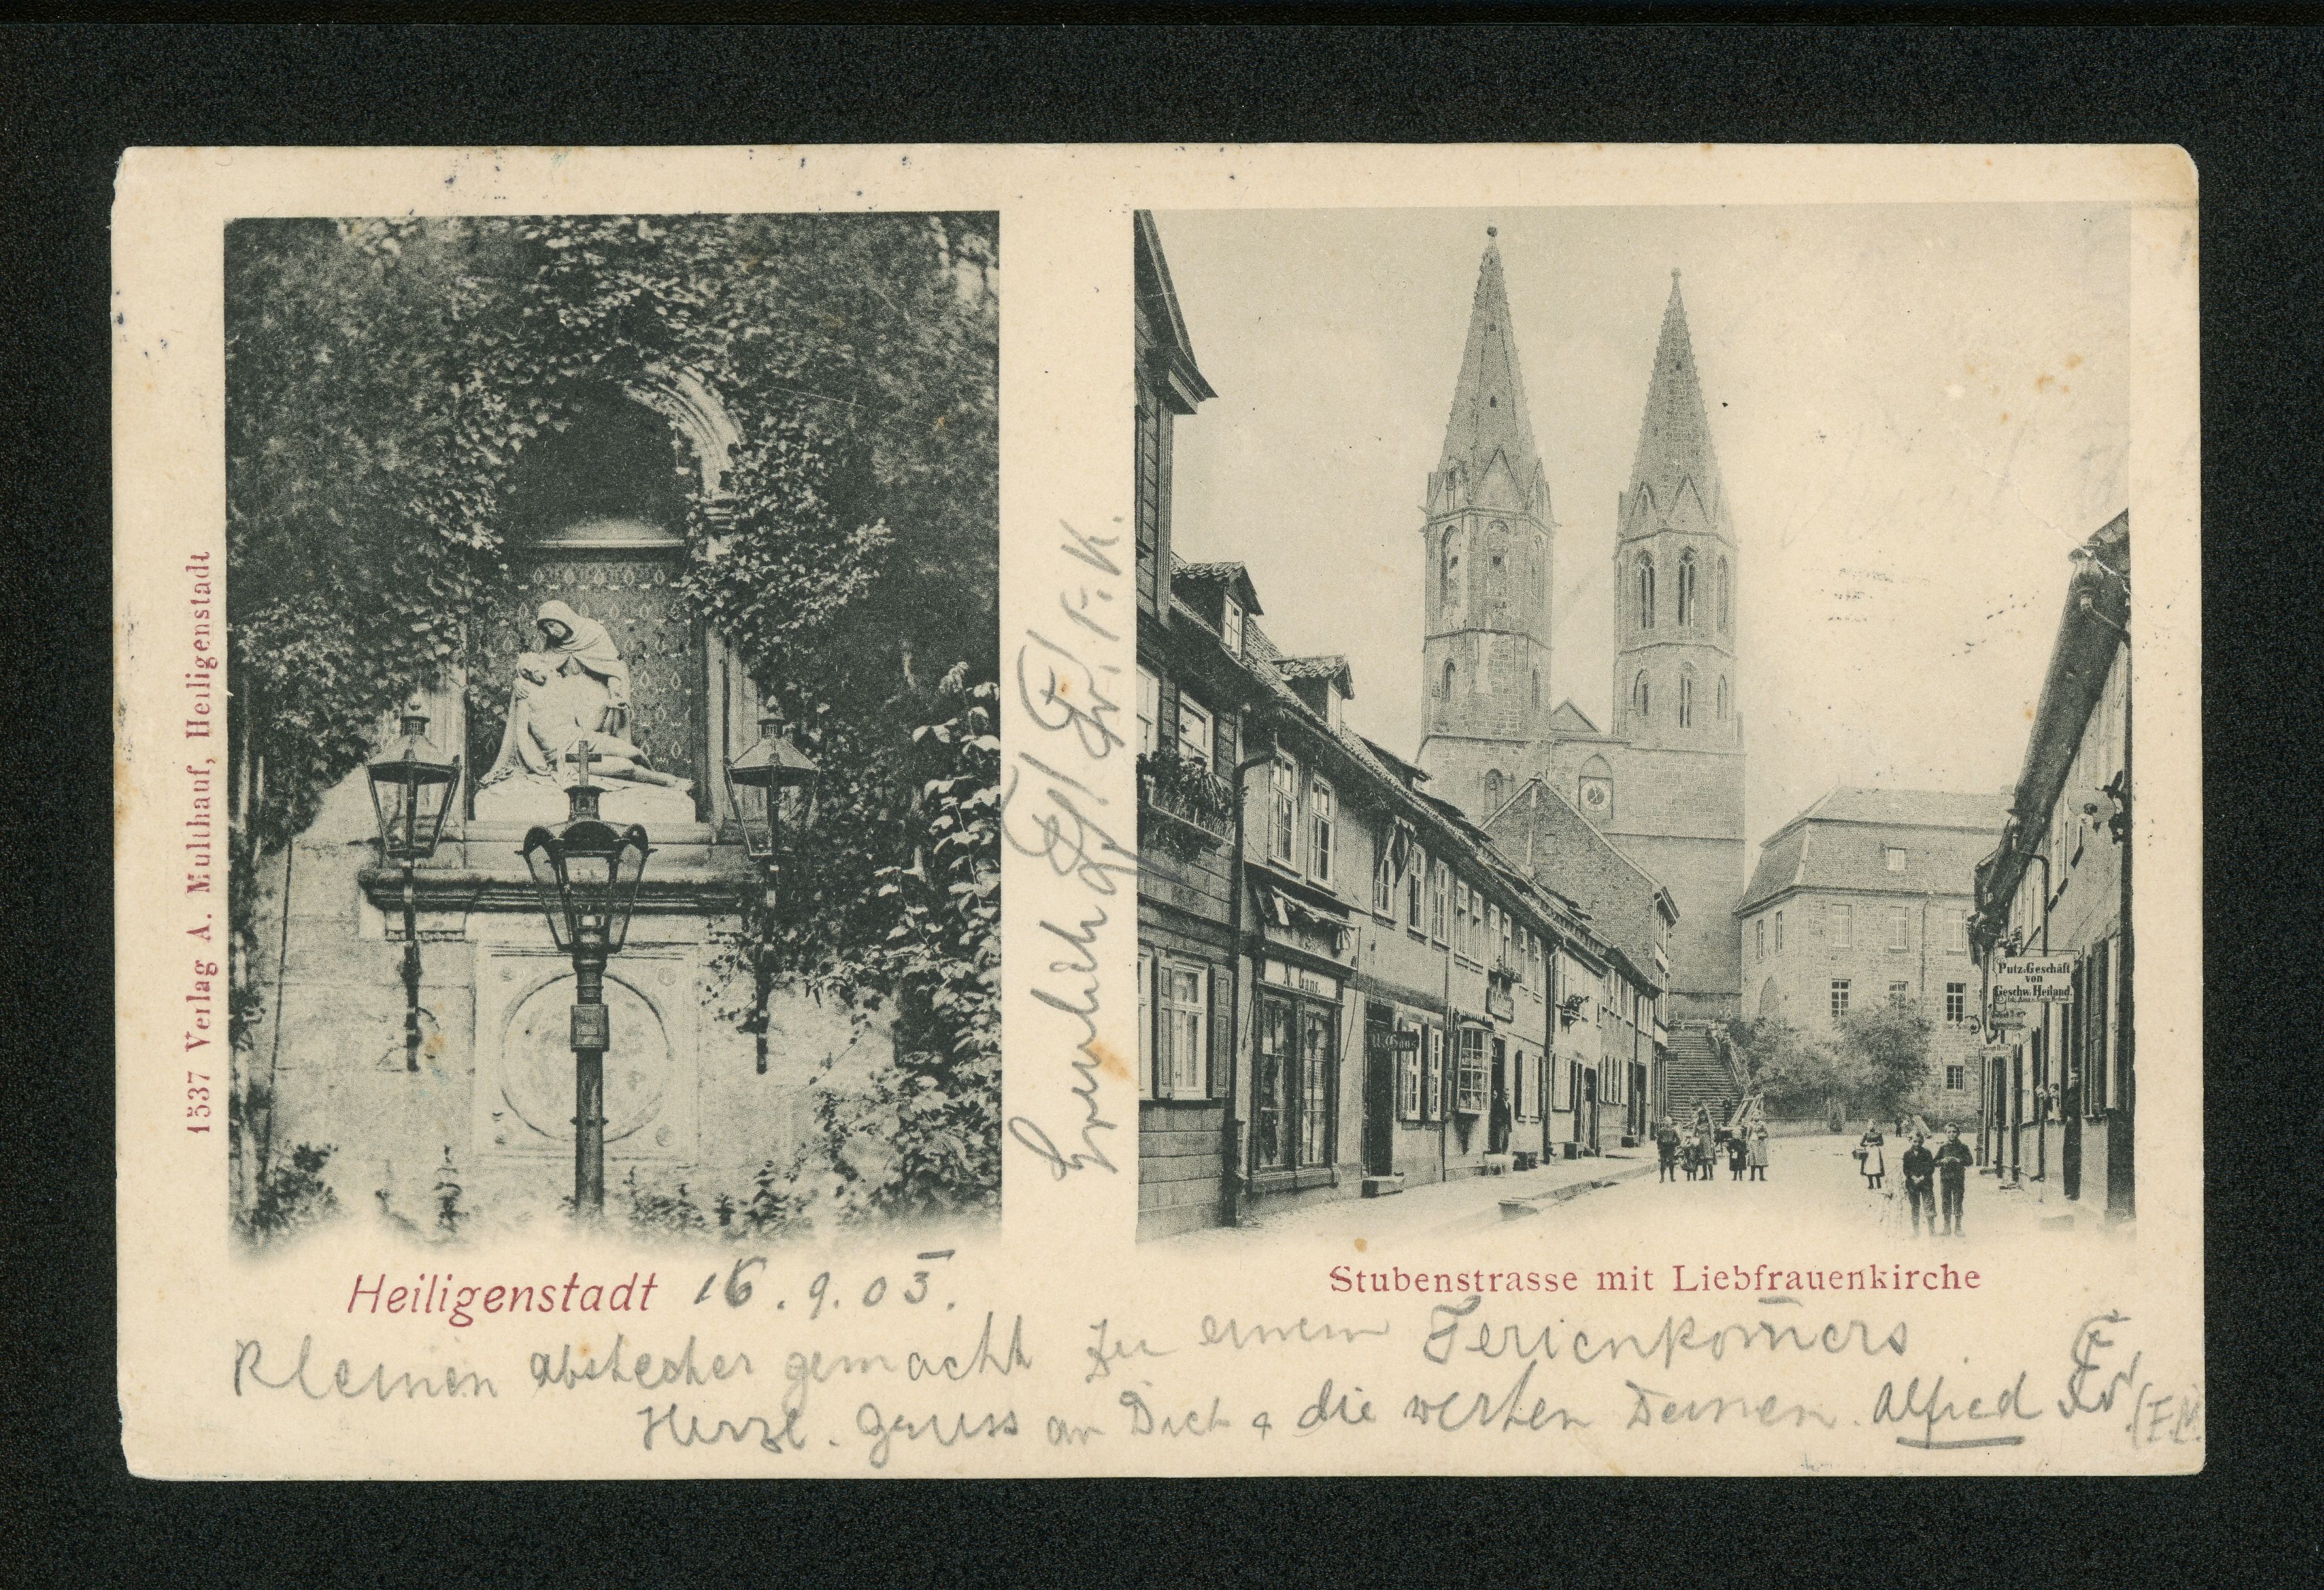 1537 Verlag A. Multhauf, Heiligenstadt
Heiligenstadt 16. 9. 05.
Stubenstrasse mit Liebfrauenkirche
Kleinen abstecher gemacht zu einem Ferienkom̄ers
Herzl. gruss an Dich & die werten Deinen. Alfred
F. K.
A. Gans.
Putz-Geschäft
von
Geschw. Heiland.